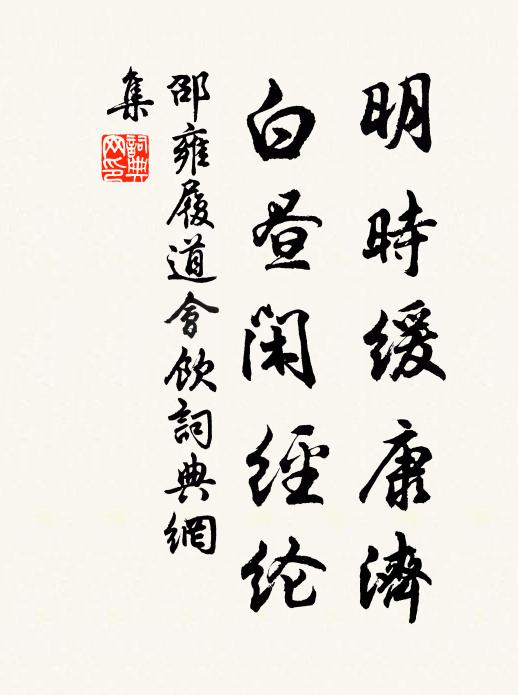 明時緩康濟
白昼閑經纶
邵雍履道會飲詞典網
集
詞典网印